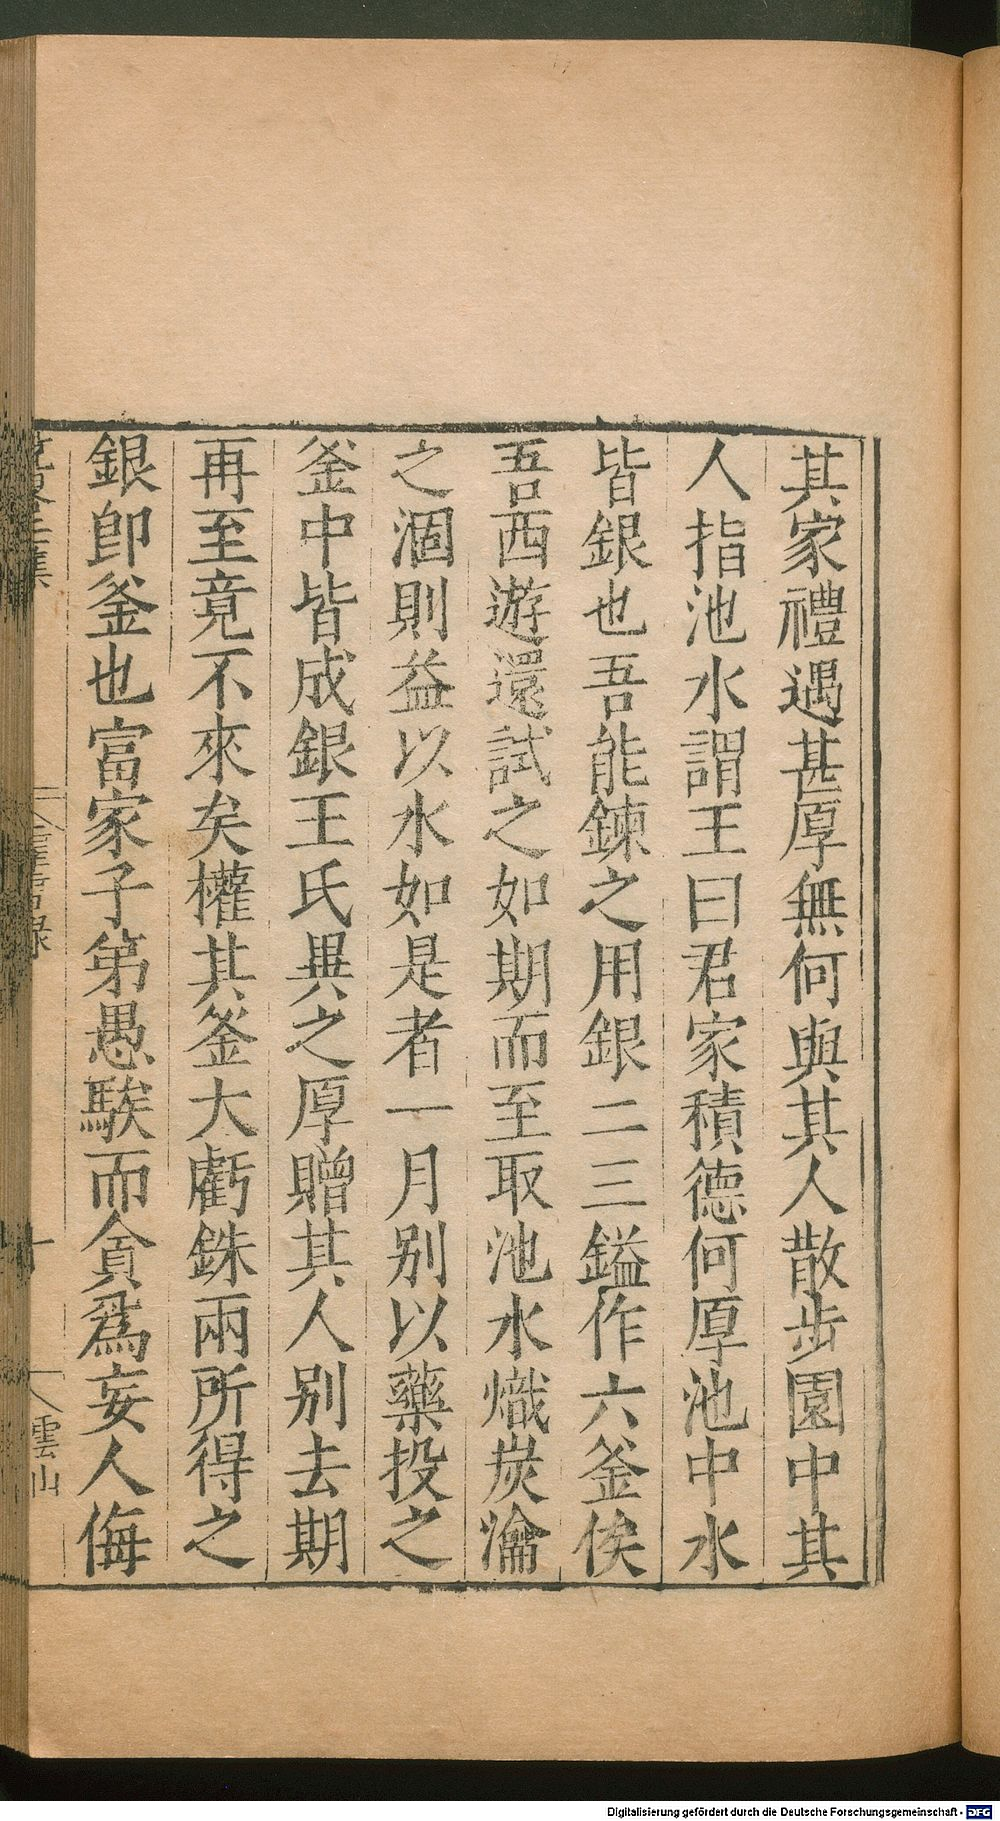 其家禮遇甚厚無何與其人散步園中其
人指池水謂王曰君家積德何厚池中水
皆銀也吾能鍊之用銀二三鎰作六釜俟
吾西遊還試之如期而至取池水熾炭瀹
之涸則益以水如是者一月別以藥投之
釜中皆成銀王氏異之厚贈其人別去期
再至竟不來矣權其釜大虧銖兩所得之
銀卽釜也富家子第愚騃而貪爲妄人侮
十
雲山
Digitalisierung gefördert durch die Deutsche Forschungsgemeinschaft - DFG